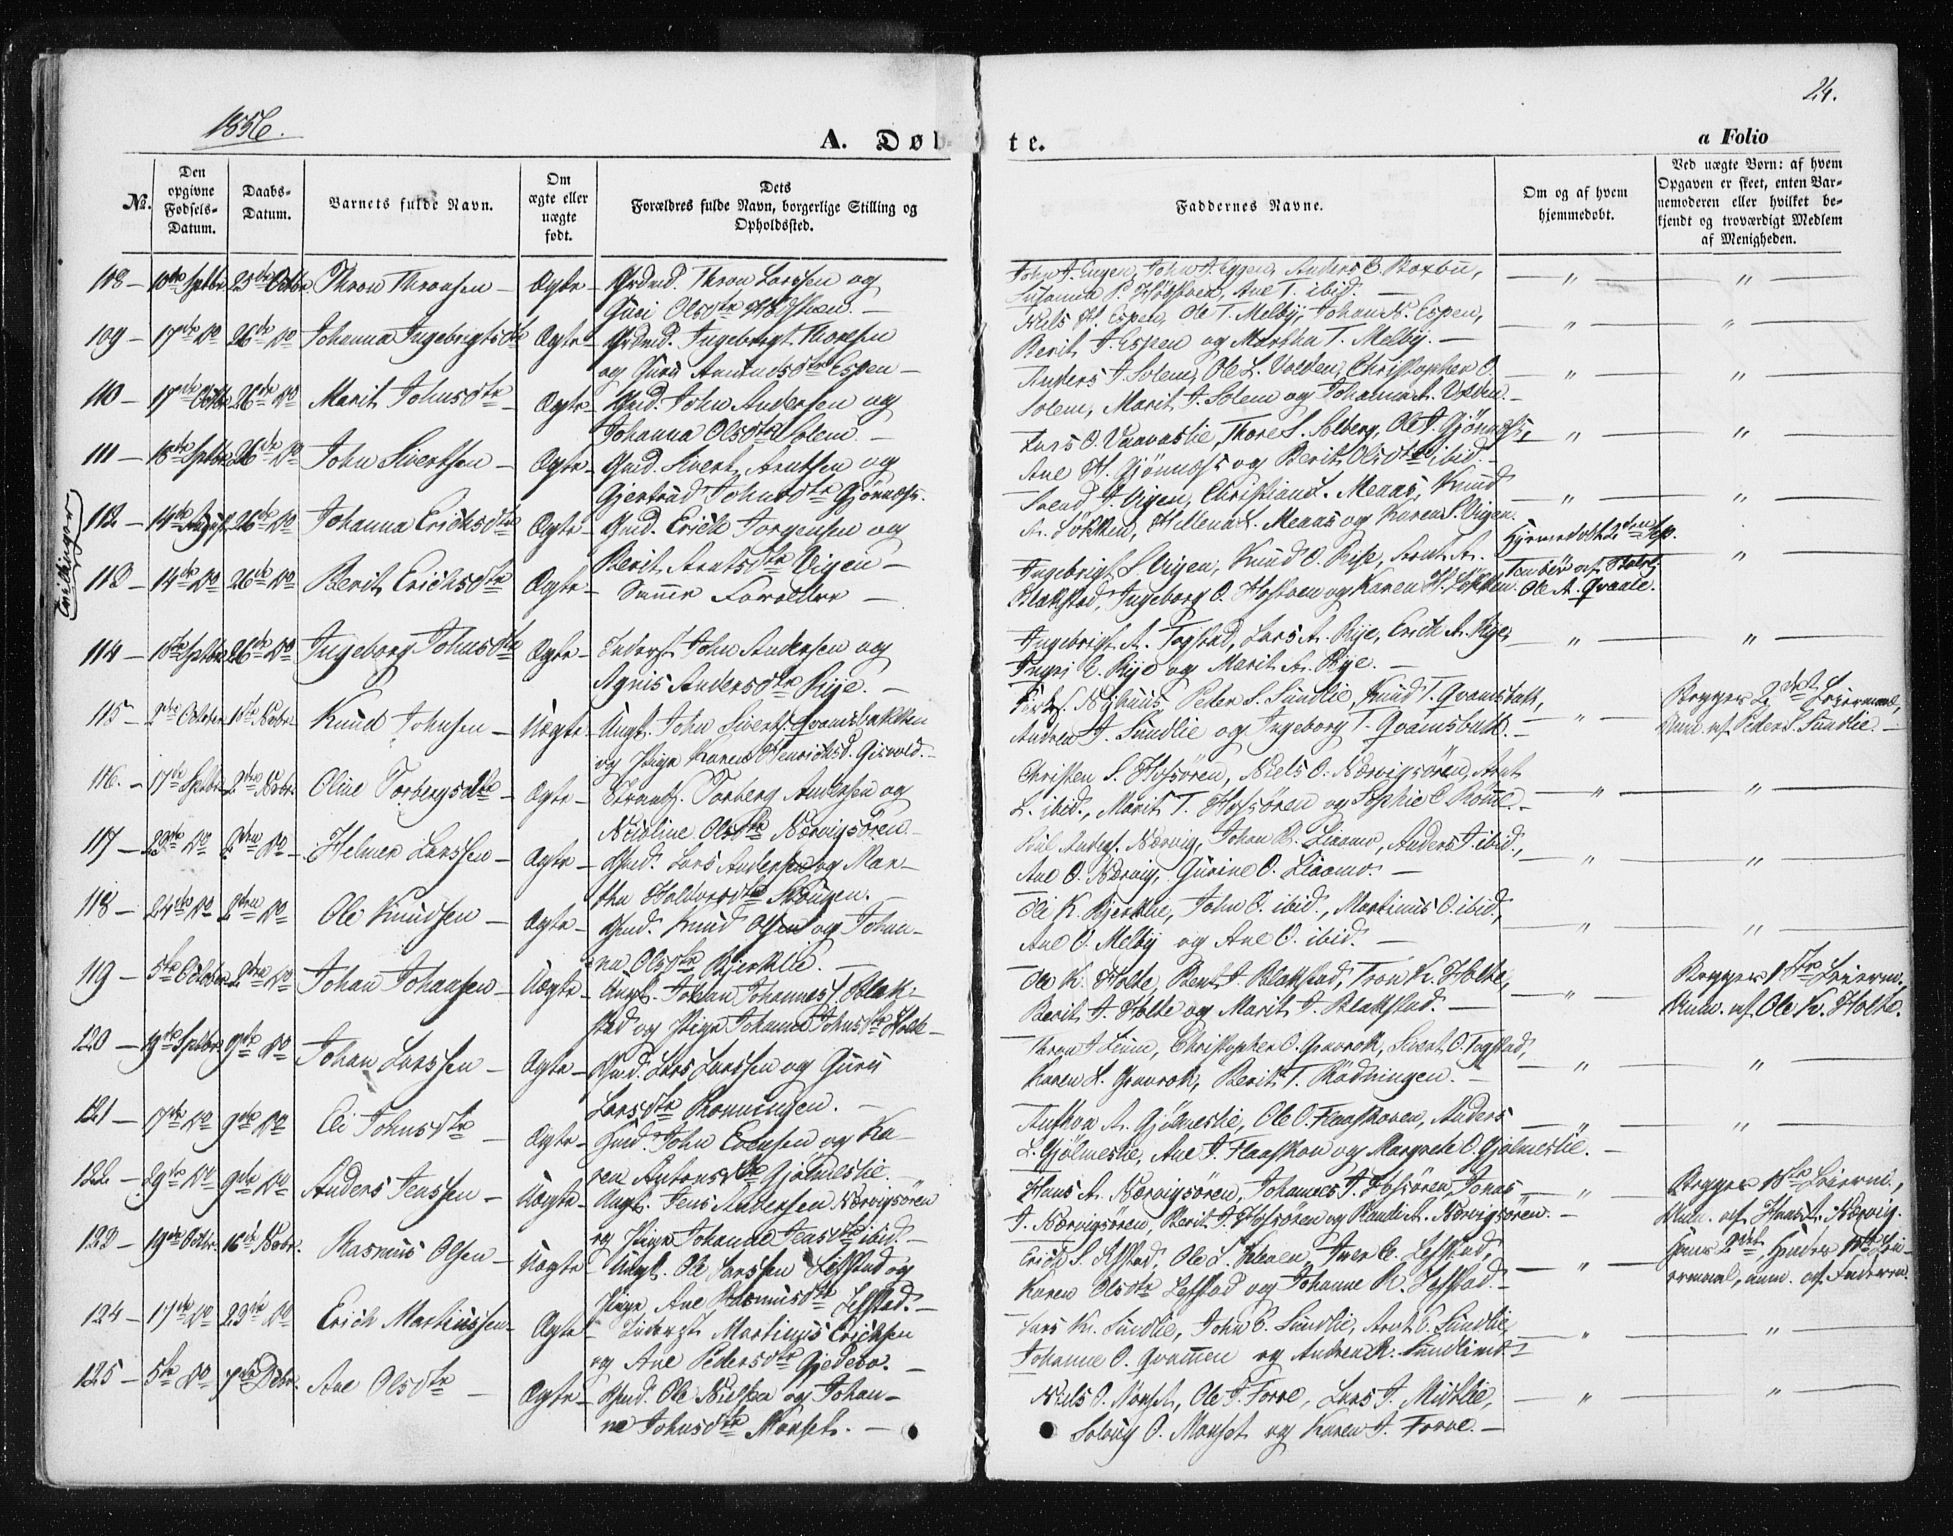 1856.
24.
A. Døbte.
a Folio
No.
Den opgivne Fødsels-Datum.
Daabs-Datum.
Barnets fulde Navn.
Om ægte eller uægte født.
Dets Forældres fulde Navn, borgerlige Stilling og Opholdssted.
Faddernes Navne.
Om og af hvem hjemmedøbt.
Ved uægte Børn: af hvem Opgaven er skeet, enten Barnemoderen eller hvilket bekjendt og troværdigt Medlem af Menigheden.
108 — 10de Septbr 25de Octbr. Thron Thronsen — Ægte — Grdmd. Thron Larssen og
Guri Olsdtr Hoston. —
John J. Engen, John J. Eggen, Anders E. Boxbu,
Susanna P. Høstven, Ane T. ibid —
109 — 17de Do 26de Do Johanna Ingebrigtsdtr Ægte — Grdmd. Ingebrigt Thoresen
og Guru Amundsdtr Espen —
Niels H. Espen, Ole T. Melby, Johan K. Espen,
Berit J. Espen og Martha T. Melby. —
110 — 17de Octbr 26de Do Marit Johnsdtr — Ægte — Gmd. John Andersen og
Johanna Olsdtr Solem —
Anders J. Solem, Ole L. Volden, Christopher O.
Solem, Marit J. Solem og Johanna A. Volden —
111 — 18de Septbr 26de Do John Sivertsen — Ægte — Gmd. Sivert Arntsen og
Gjertrud Johnsdtr Gjønnæss.
Lars O. Vaavaslie, Thore S. Solberg, Ole J. Gjønnæss,
Ane H. Gjønnæss og Berit Olsdtr ibid —
Tvillinger
112 — 14de August 26de Do Johanna Erichsdtr Ægte — Gmd. Erich Jorgensen og
Berit Arntsdtr Vigen —
Svend J. Vigen, Christian L. Menas, Knud
A. Løkken, Hellena L. Menas og Karen S. Vigen.
113 — 14de Do 26de Do Berit Erichsdtr Ægte — Samme Forældre —
Ingebrigt S. Vigen, Knud O. Rise, Arnt A.
Blakstad, Ingeborg O. Hoston og Karen H. Løkken.
Hjemmedøbt 2den Sep.
Ole A. Qvaale.
114 — 10de Septbr 26de Do Ingeborg Johnsdtr Ægte — Inderst John Andersen og
Agnis Andersdtr Rije. —
Ingebrigt A. Togstad, Lars A. Rije, Erich A. Rije,
Ingri E. Rije og Marit A. Rije. —
115 — 2de October 1ste Novbr. Knud Johnsen — Uægte — Ungk. John Siverts. Qvamsbakken
og Pige Karen Henrichsd. Grisvold. —
Peder S. Sundlie, Knud T. Qvamsbak,
Andrea J. Sundlie og Ingeborg T. Qvamsbak. —
Begges 2det Leiermaal,
Anm. af Peder S. Sundlie. —
116. — 17de Septbr 2den Novbr. Oline Torbergsdtr — Ægte — Torberg Andersen og
Nicoline Olsdtr Nærvigsøren —
Christen S. Hofsøren, Niels O. Nærvigsøren, Arnt
L. ibid., Marit T. Hofsøren og Sophie E. Romme —
117 — 23de Do 2den Do — Helmer Larssen — Ægte — Gmd. Lars Andersen og Mar-
tha Halvorsdtr Skougen. —
Nærvig, Johan B. Lioamo, Anders J. ibid.,
Ane O. Nærvig, Gurine O. Lioamo. —
118 — 24de Do 2den Do Ole Knudsen — Ægte — Gmd. Knud Olsen og Johan-
na Olsdtr Bjerklie. —
Ole K. Bjerklie, John O. ibid., Martinus O. ibid,
Ane O. Melby og Ane O. ibid. —
119 — 5te October 2den Do Johan Johansen — Uægte — Ungk. Johan Johannes. Blak-
stad og Pige Johanna Johnsdtr Holte —
Ole K. Holte, Bent J. Blakstad, Tron K. Holte,
Berit J. Holte og Marit J. Blakstad. —
Begges 1ste Leierm.
Anm. af Ole K. Holte.
120 — 19de Septbr 9de Do Johan Larssen — Ægte — Gmd. Lars Larssen og Guru
Larsdtr Ronningen. —
J. Lium, Christopher O. Gravrok, Sivert O. Togstad,
Karen L. Gravrok, Berit T. Rødningen. —
121 — 17de Do 9de Do Eli Johnsdtr — Ægte — Gmd. John Evensen og Ka-
ren Antonsdtr Gjølmeslie. —
A. Gjølmeslie, Ole O. Flaaskoven, Anders
L. Gjølmeslie, Ane J. Flaaskou og Margrete O. Gjølmeslie. —
122 — 29de Do 9de Do Anders Jenssen — Uægte — Ungk. Jens Andersen Nærvigsøren
og Pige Johanne Jensdtr ibid. —
Hans A. Nærvigsøren, Johannes J. Hofsøren, Jonas
J. Nærvigsøren, Berit J. Hofsøren og Randi A. Nærvigsøren. —
Begges 1ste Leierm.,
Anm. af Hans A. Nærvig.
123 — 19de Octbr. 16de Novbr. Rasmus Olsen — Uægte — Ungk. Ole Larssen Lefstad og
Pige Ane Rasmusdtr Lefstad. —
Erich S. Lefstad, Ole L. Kleven, Iver E. Lefstad,
Karen Olsdtr Lefstad og Johanne R. Lefstad —
Hans 2det, Hendes 1ste Lei-
ermaal, anm. af Faderen.
124 — 17de Do 23de Do Erich Martinussen — Ægte — Inderst Martinus Erichsen
og Ane Pedersdtr Gjedebo. —
Lars K. Sundlie, John E. Sundlie, Arnt E. Sundlie,
Johanne O. Qvammen og Andrea R. Sundlimt —
125 — 5te Do 7de Decbr. Ane Olsdtr — Ægte — Gmd. Ole Nielsen og Johan-
ne Johnsdtr Monset. —
Niels O. Monset, Ole J. Forve, Lars J. Midtlie,
Solvig O. Monset og Karen J. Forve. —